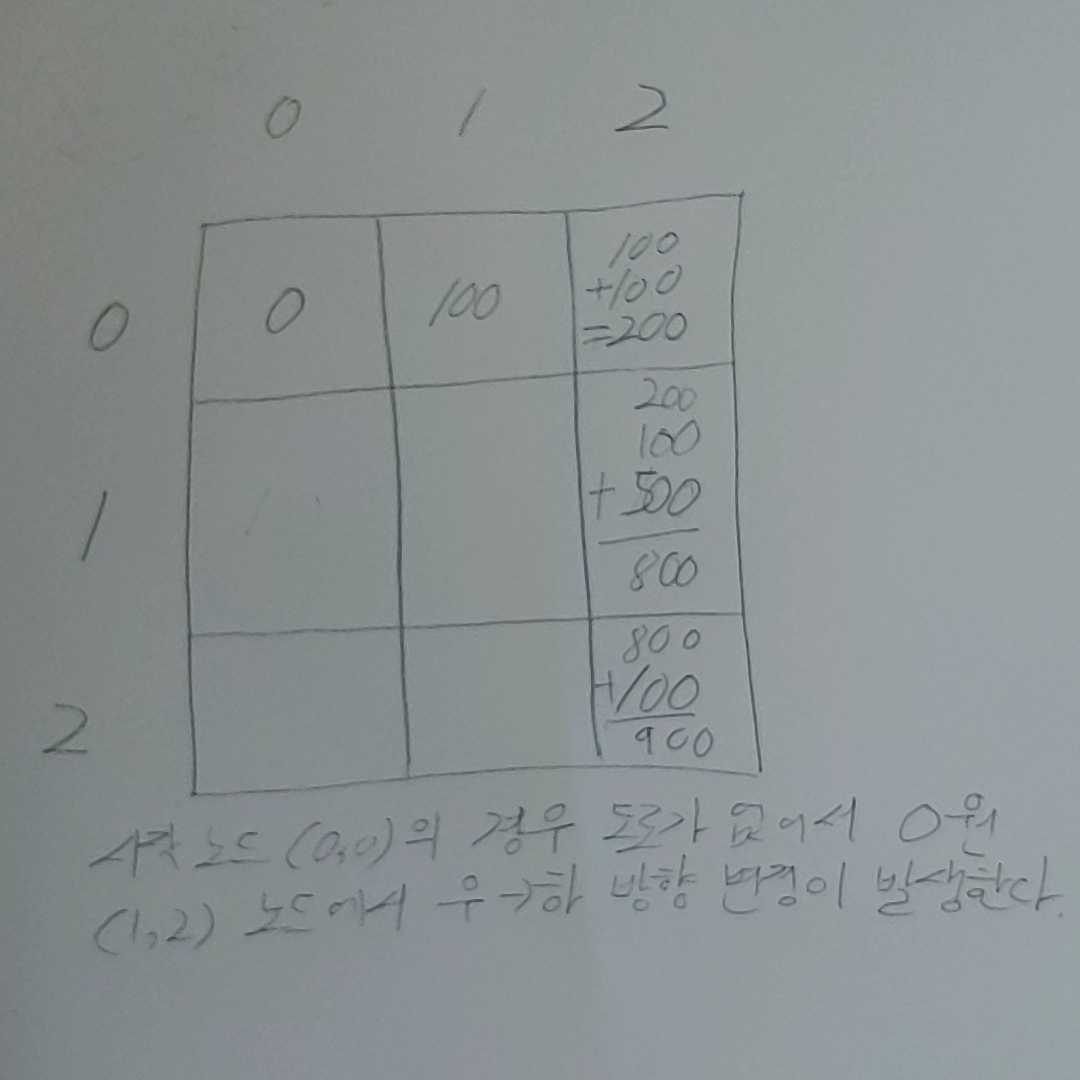 0 1 2
0 0 100 100
+100
=200
1 200
100
+ 500
800
2 800
+100
900
시작 노드 (0,0)의 경우 도로가 없어서 0원
(1,2) 노드에서 우→하 방향 변경이 발생한다.